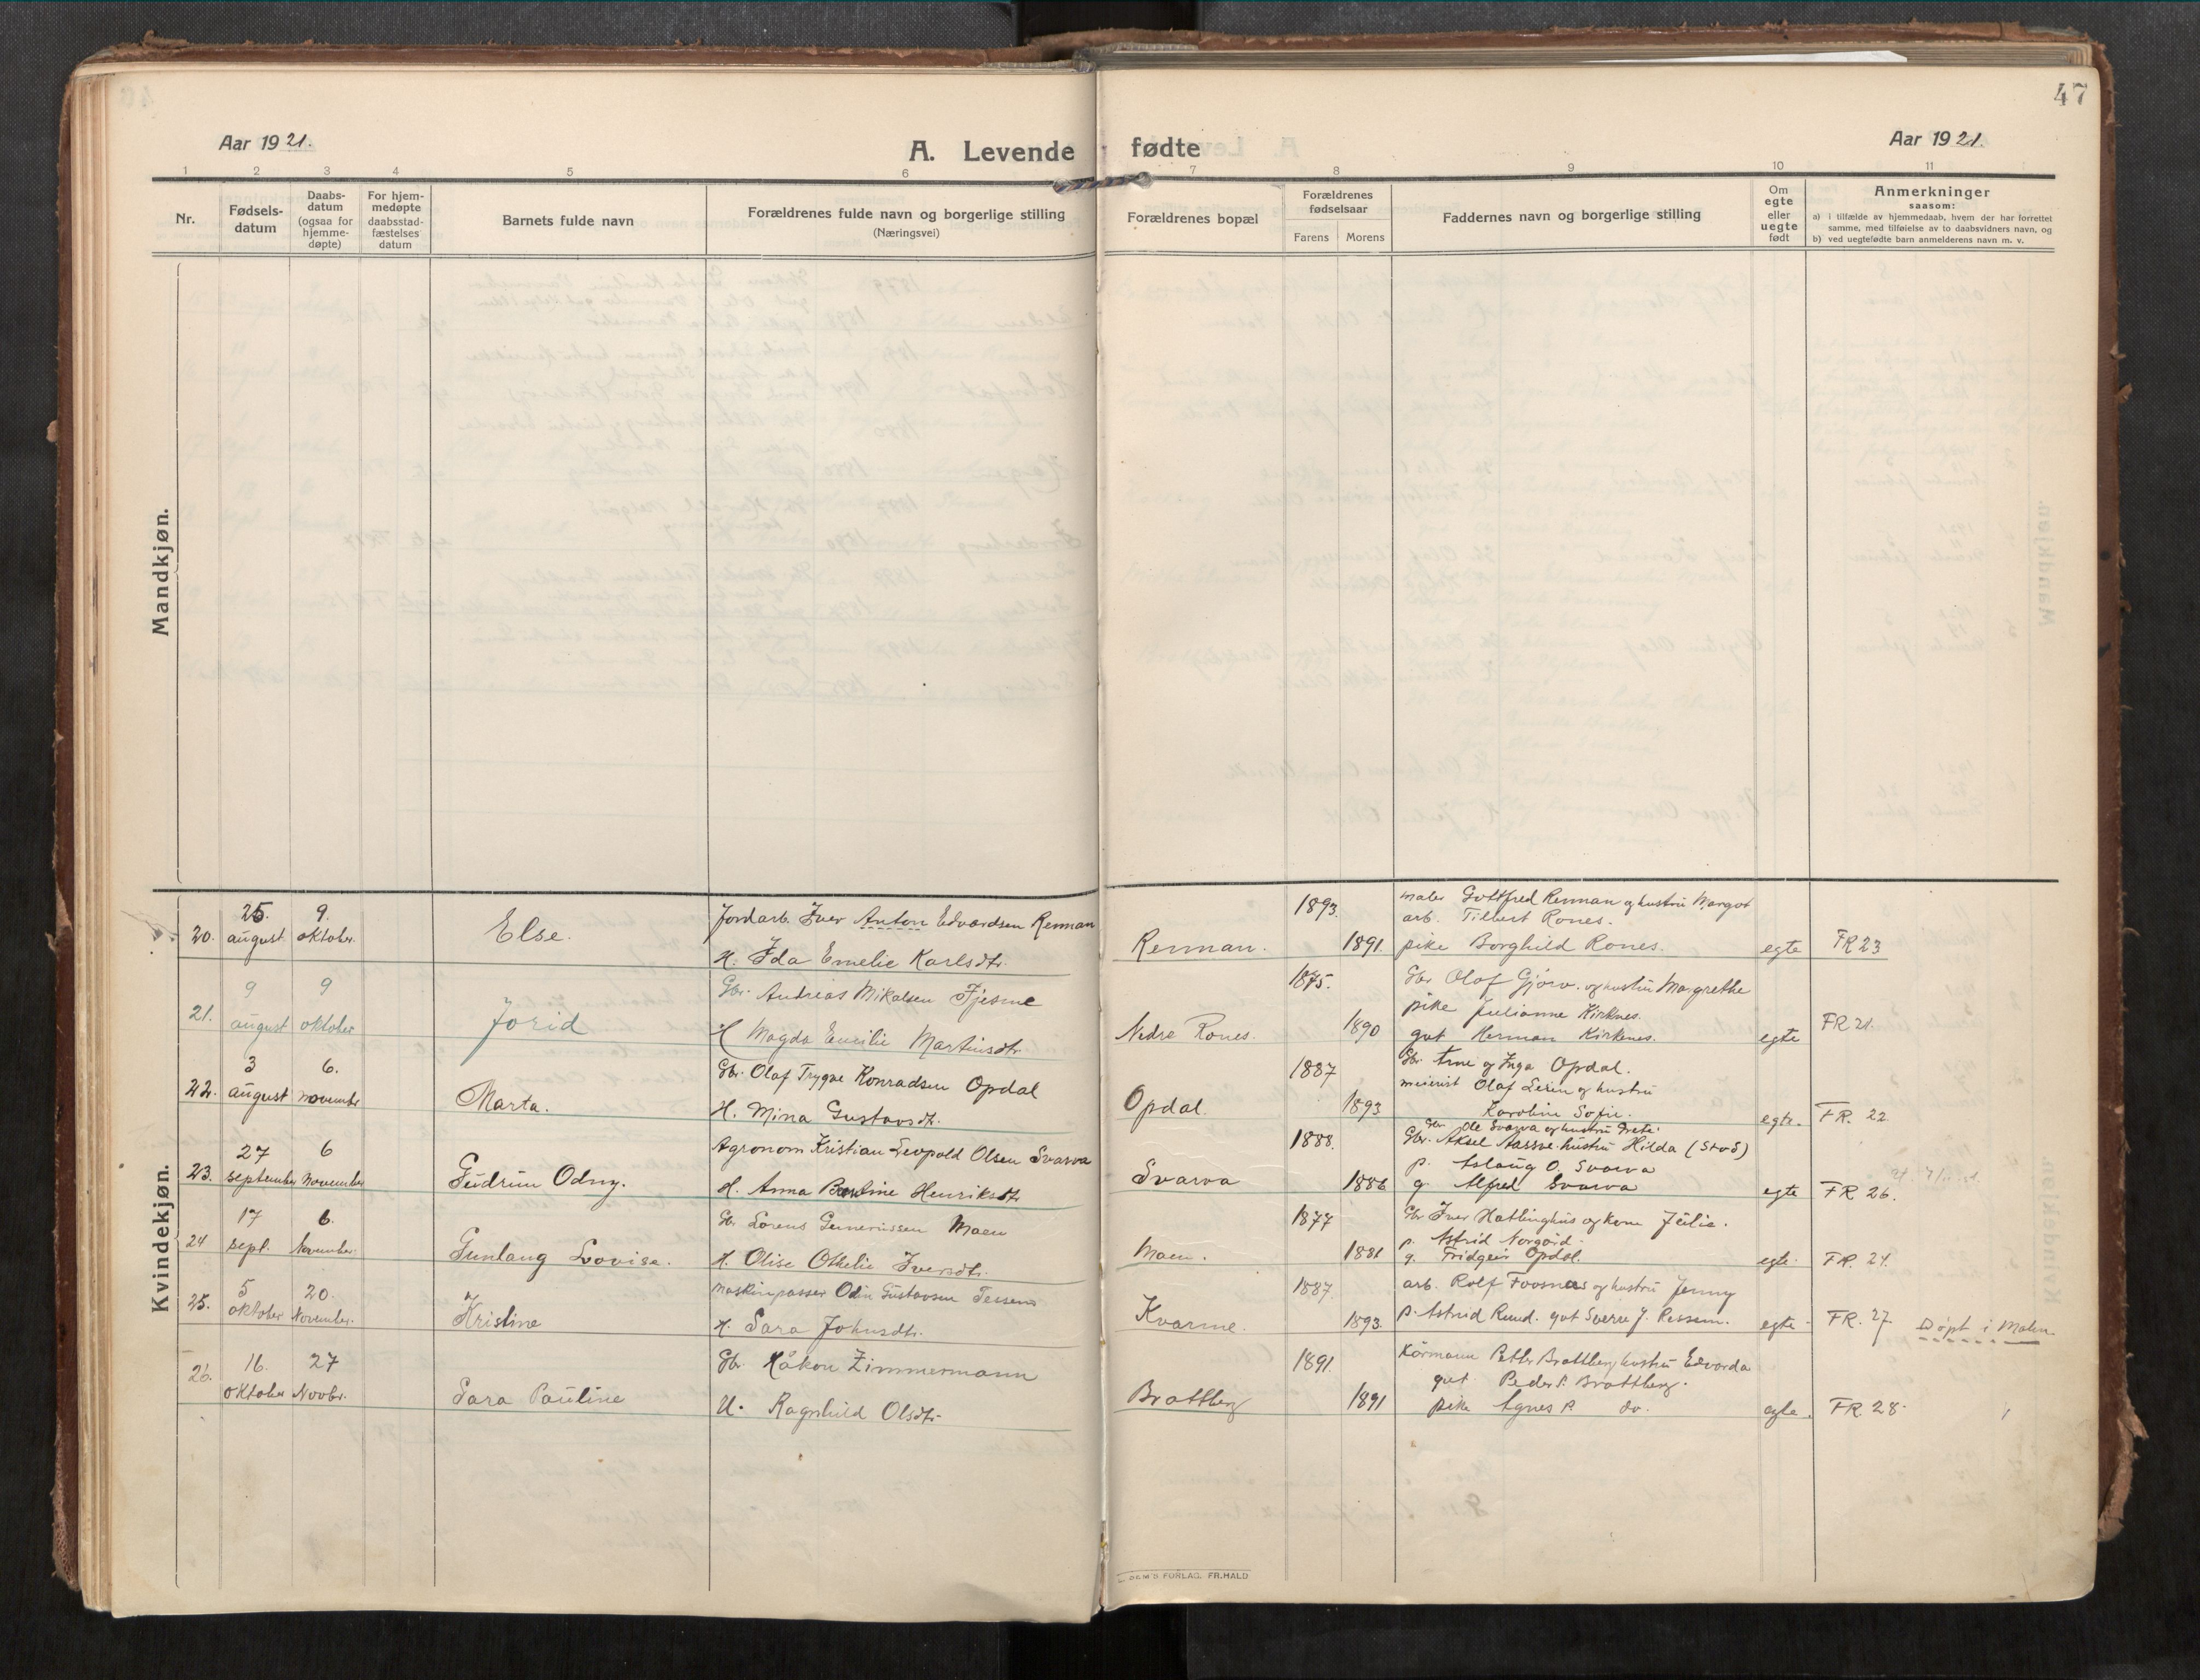 47
Aar 1921.
A. Levende fødte
Aar 1921.
1 2 3 4 5 6 7 8 9 10 11
Nr.
Fødsels-
datum
Daabs-
datum
(ogsaa for
hjemme-
døpte)
For hjem-
medøpte
daabsstad-
fæstelses
datum
Barnets fulde navn
Forældrenes fulde navn og borgerlige stilling
(Næringsvei)
Forældrenes bopæl
Forældrenes
fødselsaar
Farens
Morens
Faddernes navn og borgerlige stilling
Om
egte
eller
uegte
født
Anmerkninger
saasom:
a) i tilfælde av hjemmedaab, hvem der har forrettet
samme, med tilføielse av to daabsvidners navn, og
b) ved uegtefødte barn anmelderens navn m. v.
Mandkjøn.
Kvindekjøn.
20.
25.
august
9.
oktober.
Else.
Jordarb. Iver Anton Edvardsen Renman
H. Ida Emelie Karlsdtr.
Renman.
1893.
1891.
maler Gottfred Renman og hustru Margot
arb. Tilbert Rones.
pike Borghild Rones.
egte
FR 23
21.
9
august
9
oktober
Jorid
Gbr. Andreas Mikalsen Fjesme
H Magda Emilie Martinsdtr.
Nedre Rones.
1875.
1890
Gbr Olaf Gjørv. og hustru Margrethe
pike Julianne Kirknes.
gut Herman Kirkenes.
egte
FR 21.
22.
3
august
6.
november
Marta.
Gbr. Olaf Trygve Konradsen Opdal
H. Mina Gustavsdtr.
Opdal.
1887
1893
Gbr. Arne og Inga Opdal.
meierist Olaf Leren og hustru
Karoline Sofie.
egte.
FR. 22
23.
27
september
6
November
Gudrun Odny.
Agronom Kristian Leopold Olsen Svarva
H. Anna Pauline Henriksdtr
Svarva
1888.
1886
Gbr Ole Svarva og hustru Grete.
Gbr. Aksel Aassve hustru Hilda (Stod)
p. Aslaug O. Svarva
g. Alfred Svarva
egte
FR 26.
24
17
sept.
6.
November.
Gunlaug Lovise.
Gbr Lorens Guneriussen Maen
H. Olise Othelie Iversdtr.
Maen.
1877
1881
Gbr Iver Hatlinghus og kone Julie.
p. Astrid Norgård.
g. Fridgeir Opdal.
egte.
FR. 24.
25.
5
oktober
20.
November.
Kristine
Maskinpasser Odin Gustavsen Tessem
H. Sara Johnsdtr.
Kvarme.
1887
1893.
arb. Rolf Foosnæs og hustru Jenny
p. Astrid Rund. gut Sverre J. Ressem.
egte
FR. 27
Døpt i Malm.
26.
16.
oktober
27
Novbr.
Sara Pauline
Gbr. Håkon Zimmermann
H. Ragnhild Olsdtr.
Brattberg
1891.
1891
Kårmann Petter Brattberg hustru Edvarda
gut Peder P. Brattberg.
pike Agnes P. do.
egte.
FR 28.
FORLAG. FR. HALD